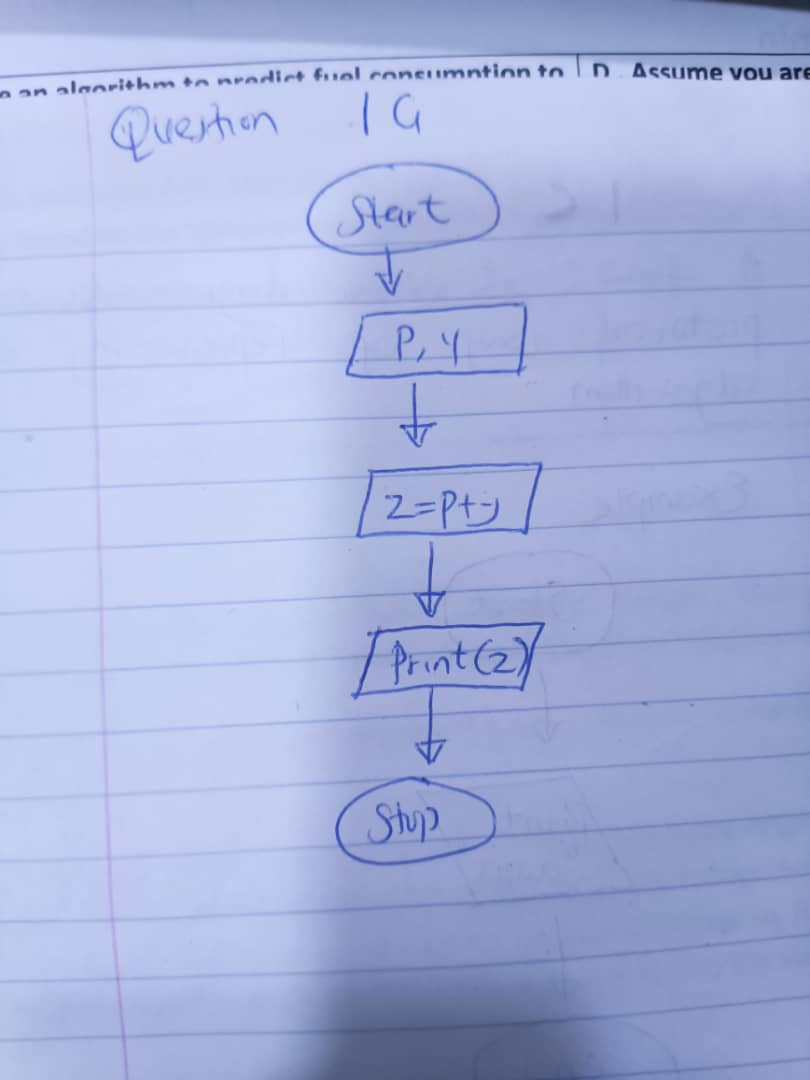 an algorithm to predict fuel consumption to D. Assume you are
Question 1G
Start
P, Y
Z=P+y
Print(Z)
Stop